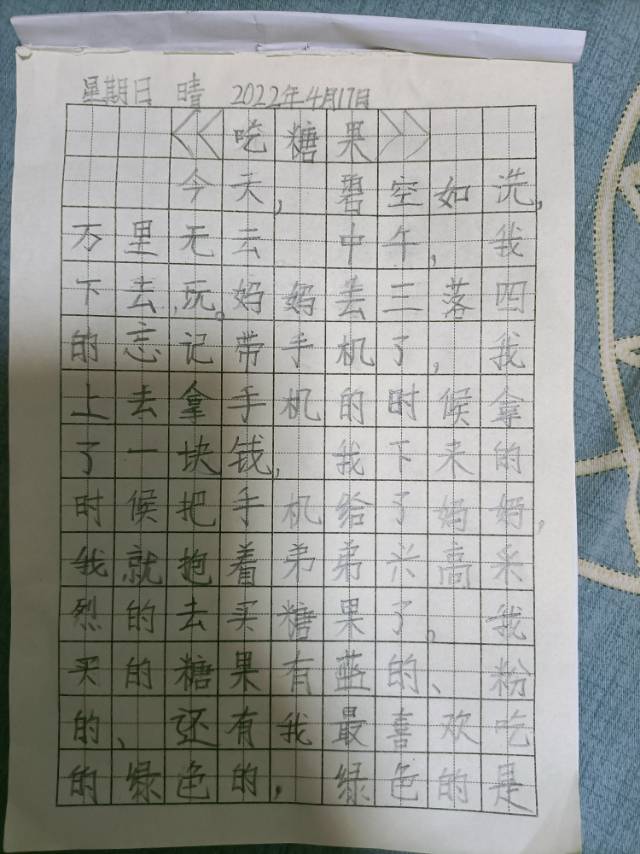 星期日 晴 2022年4月17日
《吃糖果》
今天，碧空如洗，
万里无云 中午，我
下去玩。妈妈丢三落四
的忘记带手机了，我
上去拿手机的时候拿
了一块钱，我下来的
时候把手机给了妈妈，
我就抱着弟弟兴高采
烈的去买糖果了。我
买的糖果有蓝的、粉
的、还有我最喜欢吃
的绿色的，绿色的是